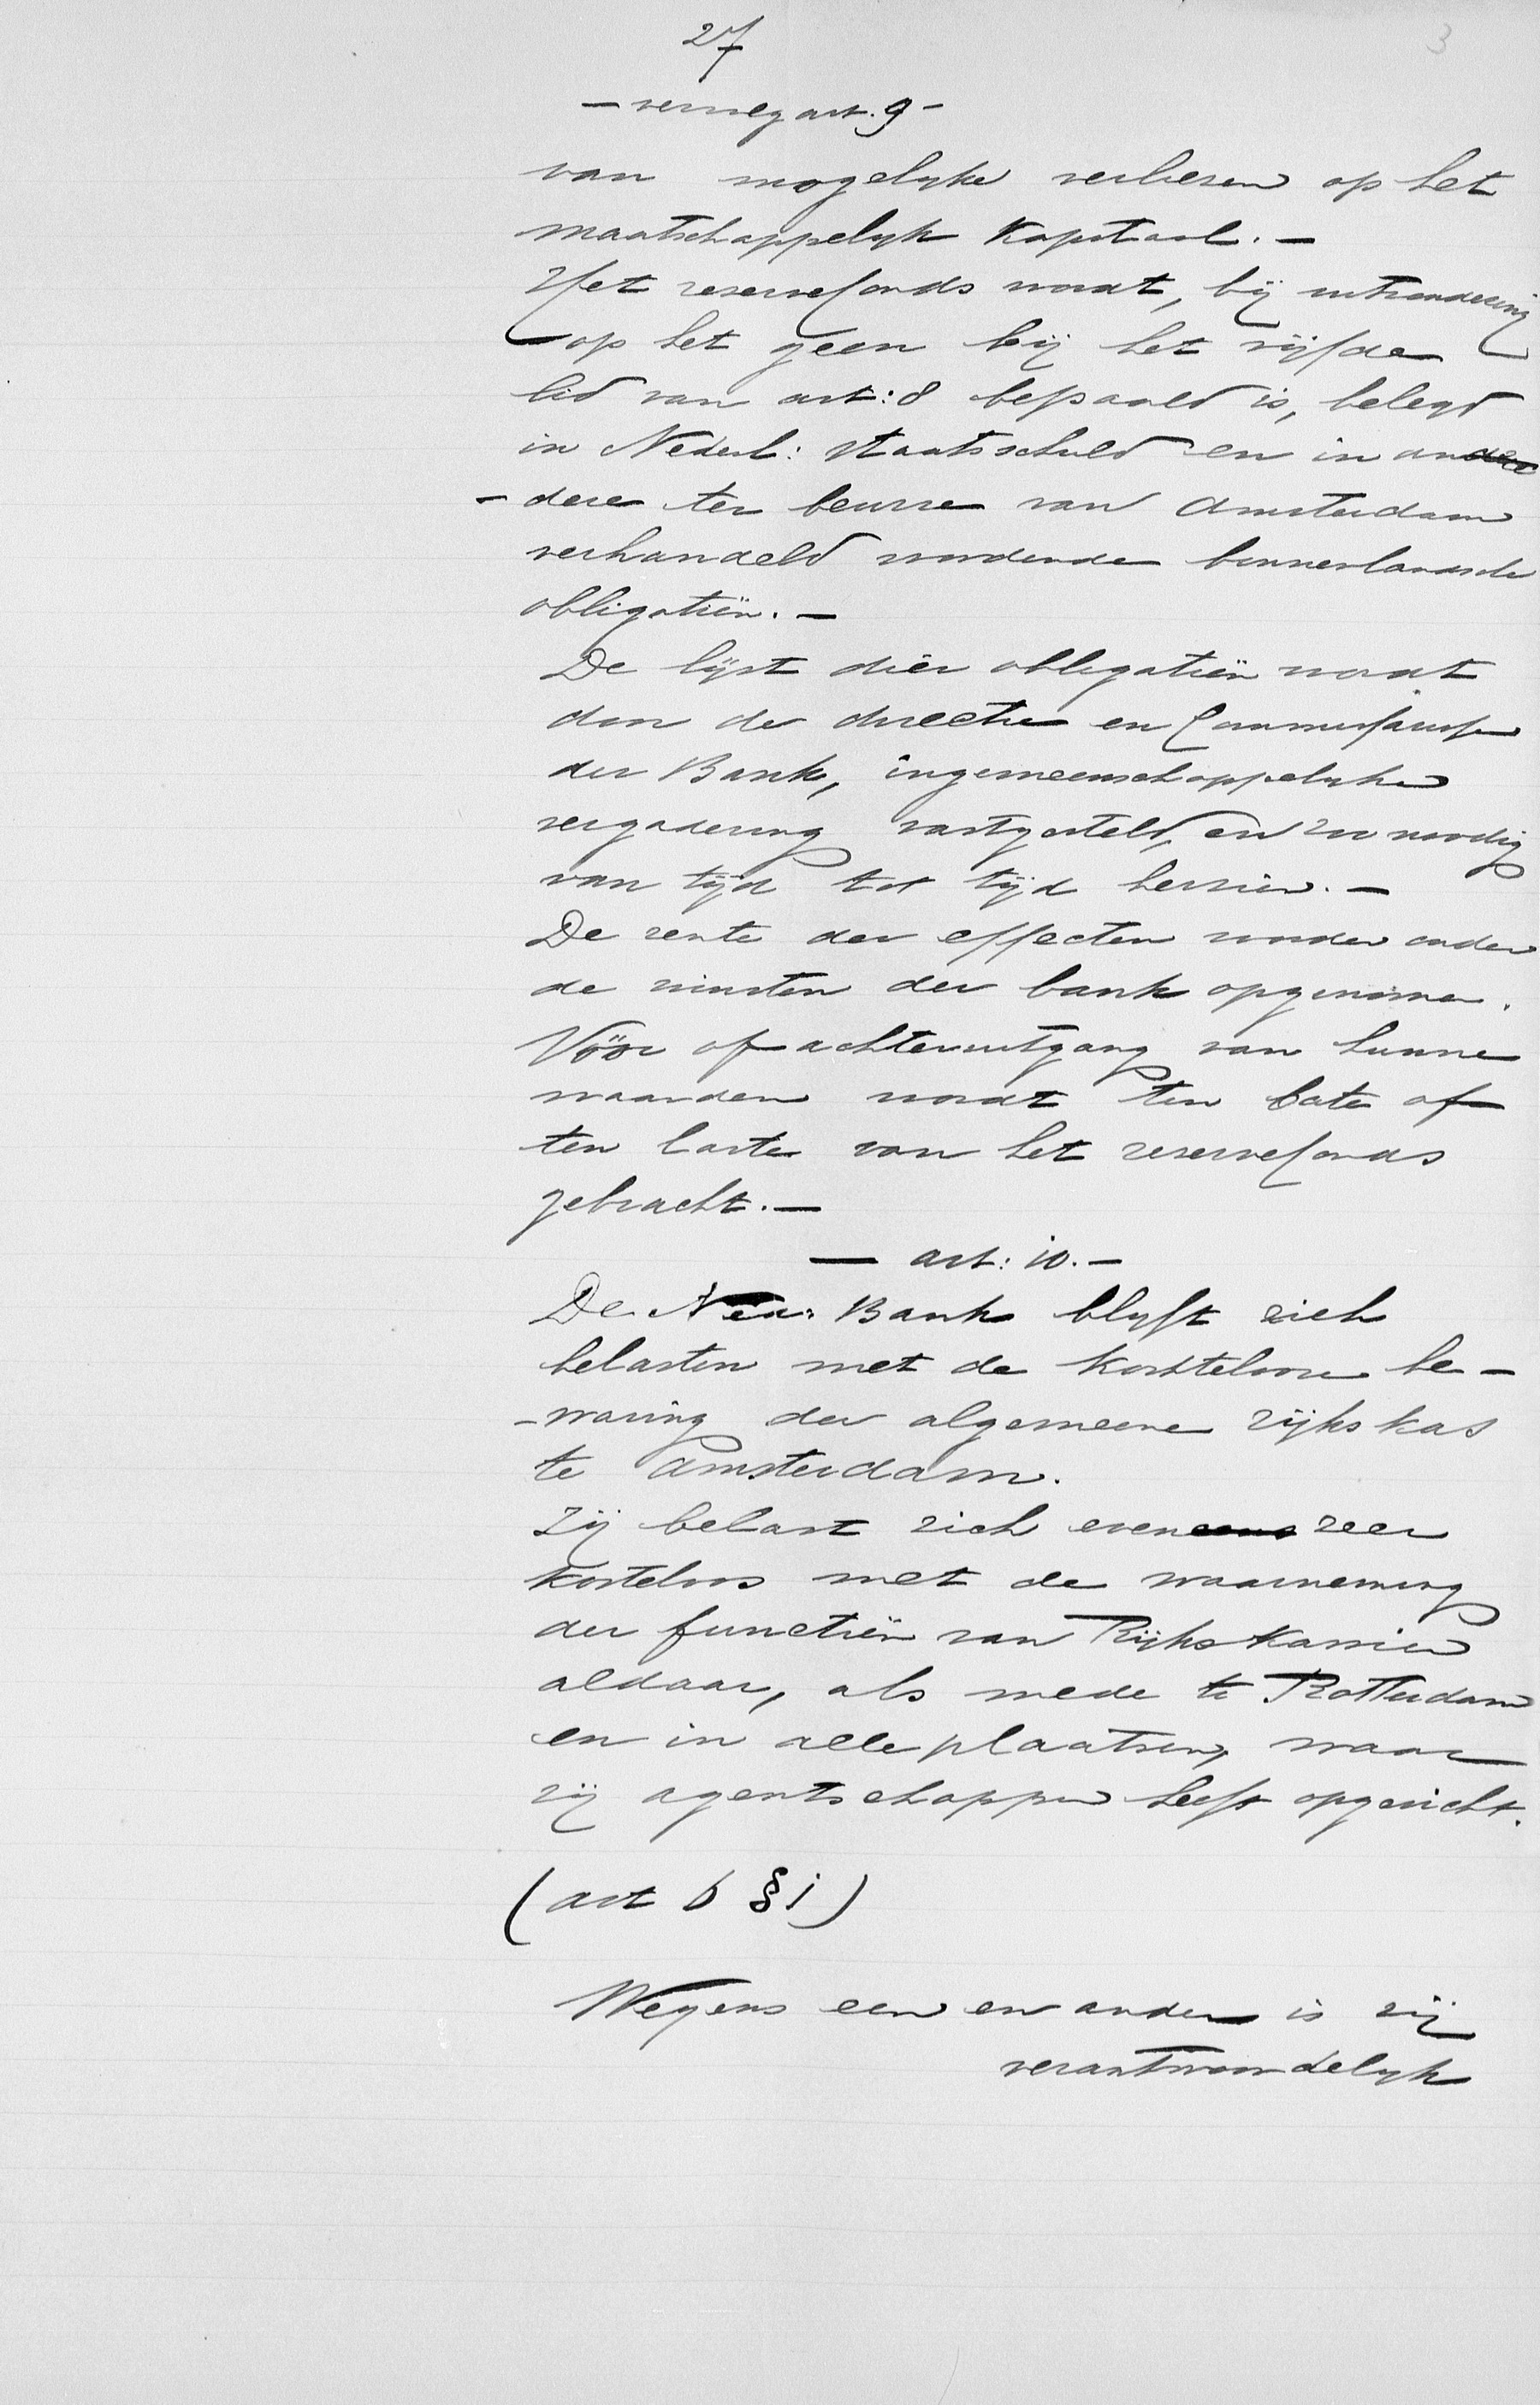 27
3
— vervolg art. 9 —
van mogelyke verliezen op het
maatschappelyk Kapitaal. —
Het reservefonds wordt, bij uitzondering
op het geen bij het vijfde
lid van art: 8 bepaald is, belegd
in Nederl: staatsschuld en in andere
- dere ter beurze van Amsterdam
verhandeld wordende binnenlandsche
obligatiën. —
De lijst dier obligatiën wordt
door de directie en Commissarissen
der Bank, in gemeenschappelyke
vergadering vastgesteld, en zoo noodig
van tijd tot tijd herzien. —
De rente der effecten worden onder
de winsten der bank opgenomen.
Vóór of achteruitgang van hunne
waarden wordt ten bate of
ten laste van het reservefonds
gebracht. —
— art: 10. —
De Ned: Bank blyft zich
belasten met de kostelooze be-
-waring der algemeene rijks kas
te Amsterdam.
Zij belast zich eveneens zeer
kosteloos met de waarneming
der functiën van Rijks Kassier
aldaar, als mede te Rotterdam
en in alle plaatsen, waar
zij agentschappen heeft opgericht.
(art 6 § 1)
Wegens een en ander is zij
verantwoordelyk